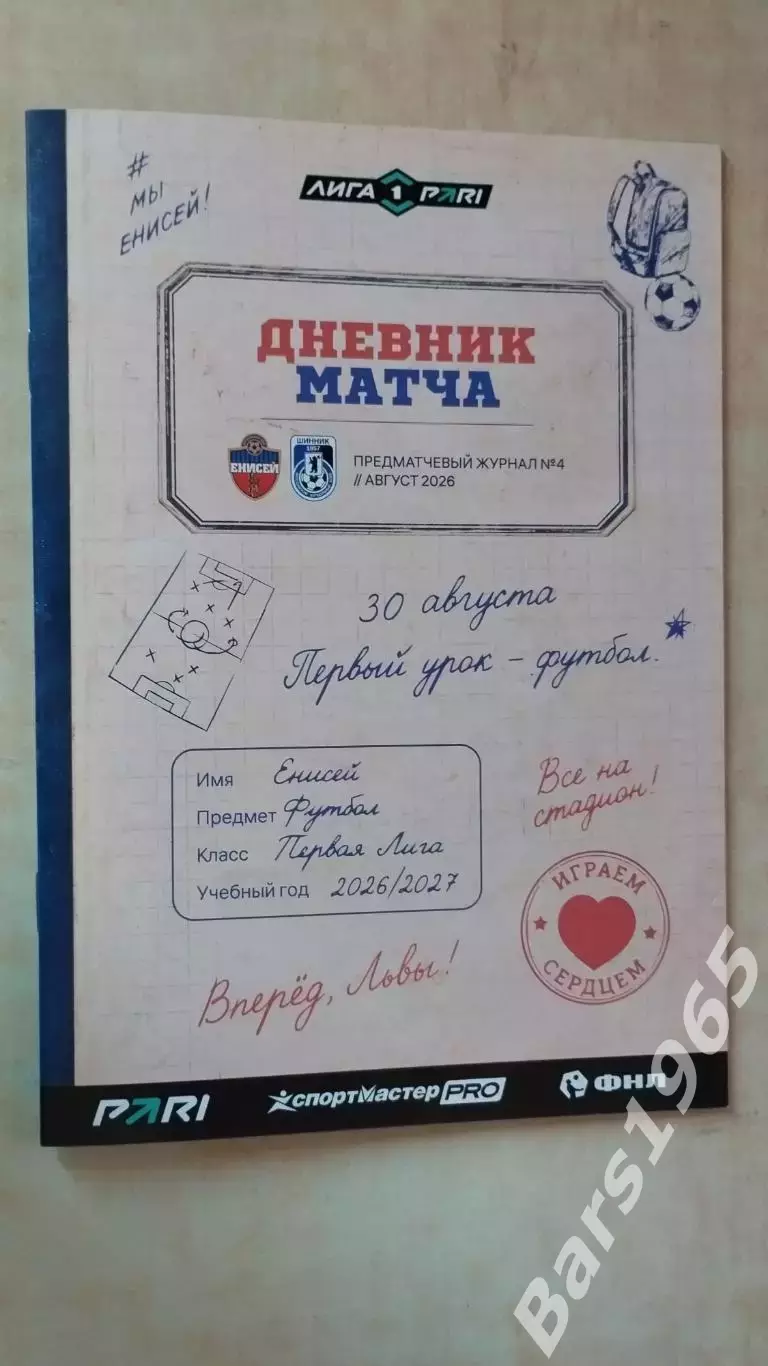 #
МЫ
ЕНИСЕЙ!
ЛИГА 1 PARI
ДНЕВНИК
МАТЧА
ЕНИСЕЙ
ШИННИК
1957
ПРЕДМАТЧЕВЫЙ ЖУРНАЛ №4
// АВГУСТ 2026
30 августа
Первый урок – футбол.
Имя Енисей
Предмет Футбол
Класс Первая Лига
Учебный год 2026/2027
Все на
стадион!
ИГРАЕМ
СЕРДЦЕМ
Вперёд, Львы!
PARI
спортмастер PRO
ФНЛ
Bars1965